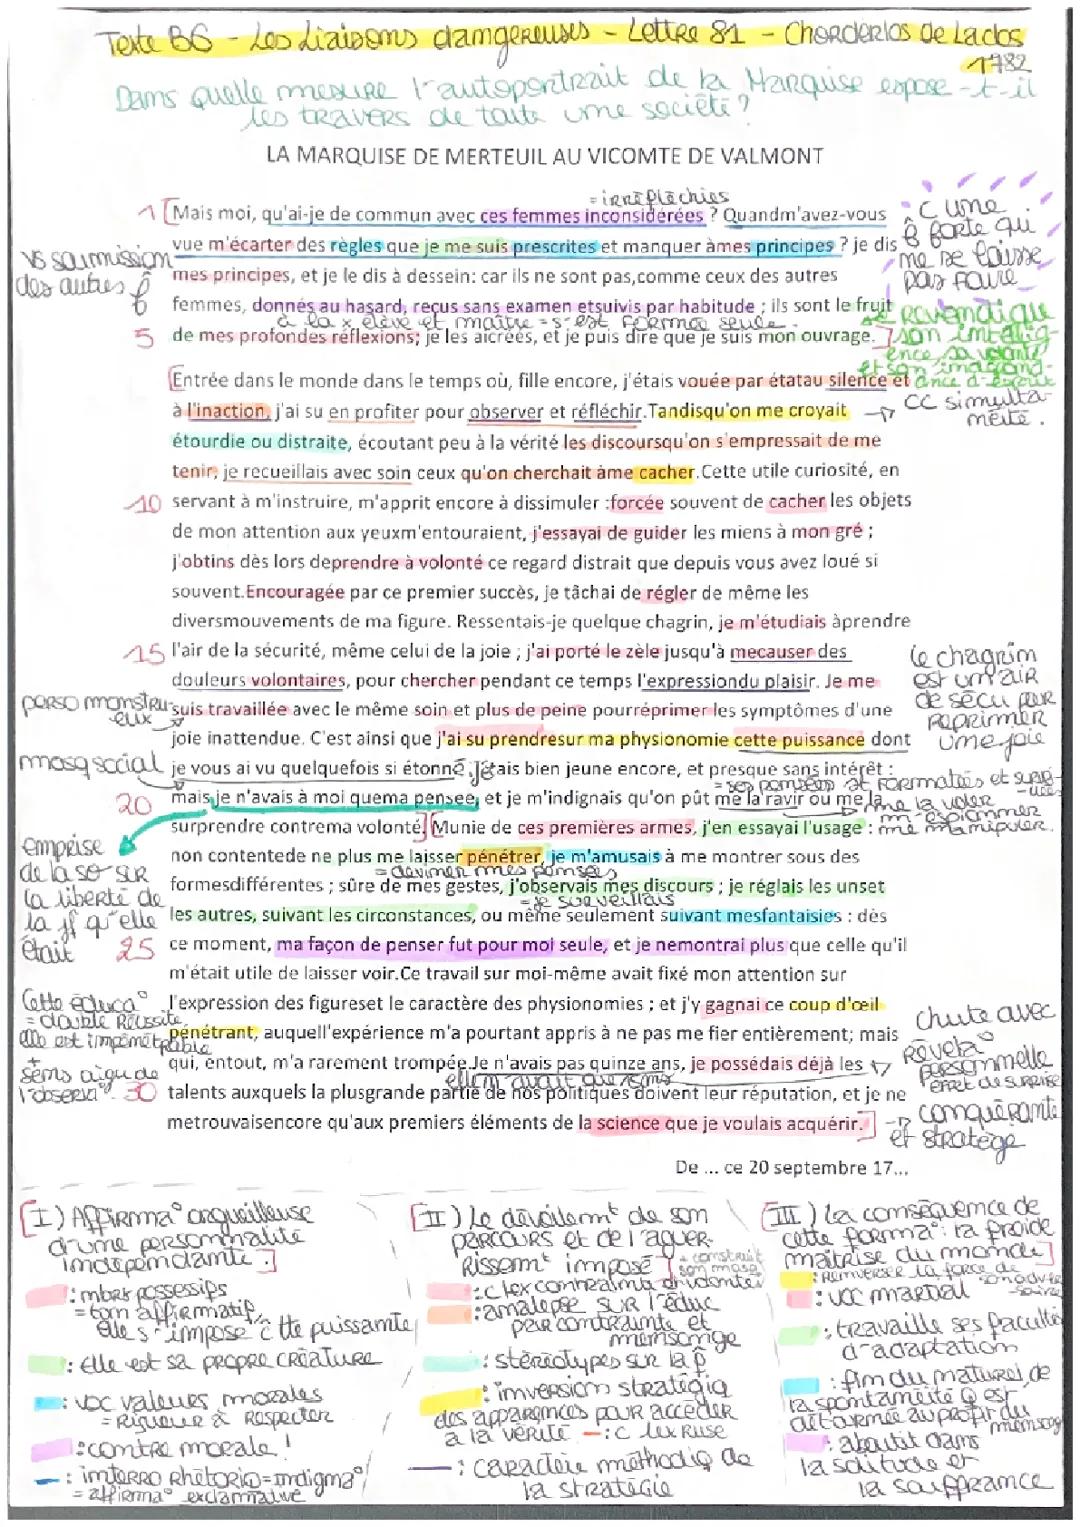 Texte B6 - Les Liaisons dangereuses - Lettre 81 - Choderlos de Laclos
1782
Dans quelle mesure l'autoportrait de la Marquise expose-t-il
les travers de toute une société ?
LA MARQUISE DE MERTEUIL AU VICOMTE DE VALMONT
= irréfléchies
1 [Mais moi, qu'ai-je de commun avec ces femmes inconsidérées ? Quandm'avez-vous
vue m'écarter des règles que je me suis prescrites et manquer àmes principes ? je dis
mes principes, et je le dis à dessein: car ils ne sont pas,comme ceux des autres
femmes, donnés au hasard, reçus sans examen etsuivis par habitude ; ils sont le fruit
à la x élève et maître = s'est formée seule.
5 de mes profondes réflexions; je les aicréés, et je puis dire que je suis mon ouvrage.]
vs soumission
des autres f
C une
f forte qui
me se laisse
pas faire
Revendique
son intellig-
ence, sa volonté
et son indépend-
ance d'esprit
[Entrée dans le monde dans le temps où, fille encore, j'étais vouée par étatau silence et
à l'inaction, j'ai su en profiter pour observer et réfléchir.Tandisqu'on me croyait
étourdie ou distraite, écoutant peu à la vérité les discoursqu'on s'empressait de me
tenir, je recueillais avec soin ceux qu'on cherchait àme cacher.Cette utile curiosité, en
10 servant à m'instruire, m'apprit encore à dissimuler :forcée souvent de cacher les objets
de mon attention aux yeuxm'entouraient, j'essayai de guider les miens à mon gré ;
j'obtins dès lors deprendre à volonté ce regard distrait que depuis vous avez loué si
souvent.Encouragée par ce premier succès, je tâchai de régler de même les
diversmouvements de ma figure. Ressentais-je quelque chagrin, je m'étudiais àprendre
15 l'air de la sécurité, même celui de la joie ; j'ai porté le zèle jusqu'à mecauser des
douleurs volontaires, pour chercher pendant ce temps l'expressiondu plaisir. Je me
suis travaillée avec le même soin et plus de peine pourréprimer les symptômes d'une
joie inattendue. C'est ainsi que j'ai su prendresur ma physionomie cette puissance dont
je vous ai vu quelquefois si étonné.J'étais bien jeune encore, et presque sans intérêt :
= ses pensées st formatées et
20 mais je n'avais à moi quema pensée, et je m'indignais qu'on pût me la ravir ou me la
me la voler
m'espionner
me manipuler.
surprendre contrema volonté] [Munie de ces premières armes, j'en essayai l'usage :
non contentede ne plus me laisser pénétrer, je m'amusais à me montrer sous des
= deviner mes pensées
formesdifférentes ; sûre de mes gestes, j'observais mes discours ; je réglais les unset
= je surveillais
les autres, suivant les circonstances, ou même seulement suivant mesfantaisies : dès
25 ce moment, ma façon de penser fut pour moi seule, et je nemontrai plus que celle qu'il
m'était utile de laisser voir.Ce travail sur moi-même avait fixé mon attention sur
l'expression des figureset le caractère des physionomies ; et j'y gagnai ce coup d'œil
pénétrant, auquell'expérience m'a pourtant appris à ne pas me fier entièrement; mais
qui, entout, m'a rarement trompée.Je n'avais pas quinze ans, je possédais déjà les
elle n'avait que 15 ans
30 talents auxquels la plusgrande partie de nos politiques doivent leur réputation, et je ne
metrouvaisencore qu'aux premiers éléments de la science que je voulais acquérir.]
De ... ce 20 septembre 17...
CC simulta-
méité.
le chagrin
est un air
de sécu pour
réprimer
une joie
perso monstru-
eux
masq social
emprise
de la so sur
la liberté de
la jf qu'elle
était
Cette éduca°
= double réussite
elle est impénétrable
+
sens aigu de
l'observa°.
chute avec
révéla°
personnelle
effet de surprise
conquérante
et stratège
[I) Affirma° orgueilleuse
d'une personnalité
indépendante.]
: mbrx possessifs
= ton affirmatif,
elle s'impose c tte puissante
: Elle est sa propre créature
: voc valeurs morales
= Rigueur à respecter
: contre morale !
: interro rhétoriq = indigna°
= affirma° exclamative
[II) Le dévoilemt de son
parcours et de l'aguer-
rissemt imposé]
+ construit
son masq
: c lex contrainte
: analepse sur l'éduc
par contrainte et
mensonge
: stéréotypes sur la f
: inversion stratégiq
des apparences pour accéder
à la vérité - : c lex ruse
: caractère méthodiq de
la stratégie
[III) La conséquence de
cette forma° : la froide
maîtrise du monde]
: Renverser la force de
son adver-
saire
: voc martial
: travaille ses facultés
d'adaptation
: fin du naturel, de
la spontanéité q est
détournée au profit du
mensonge
: aboutit dans
la solitude et
la souffrance